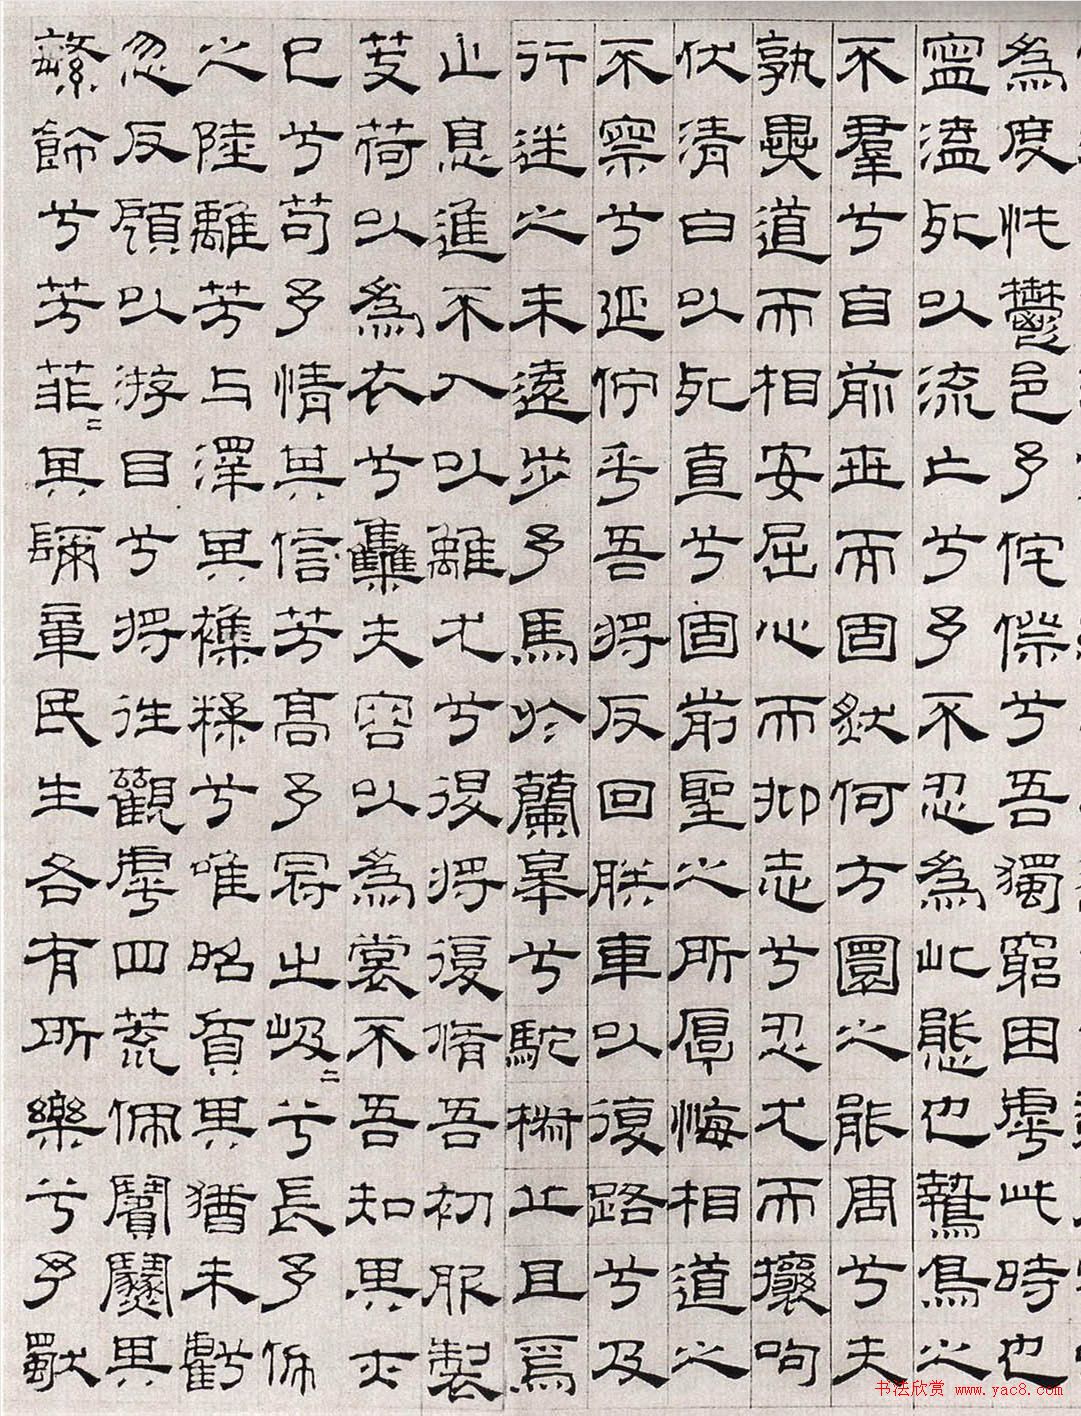 為度忳鬱邑予侘傺兮吾獨窮困虖此時也
寧溘死以流亡兮予不忍為此態也鷙鳥之
不羣兮自前世而固然何方圜之能周兮夫
孰異道而相安屈心而抑志兮忍尤而攘呴
伏清白以死直兮固前聖之所厚悔相道之
不察兮延佇乎吾將反回朕車以復路兮及
行迷之未遠步予馬於蘭皋兮馳椒丘且焉
止息進不入以離尤兮退將復脩吾初服製
芰荷以為衣兮雧夫容以為裳不吾知其亦
已兮苟予情其信芳高予冠之岌二兮長予佩
之陸離芳与澤其雜糅兮唯昭質其猶未虧
忽反顧以游目兮將往觀虖四荒佩繽紛其
繁飾兮芳菲二其彌章民生各有所樂兮予獨
书法欣赏 www.yac8.com